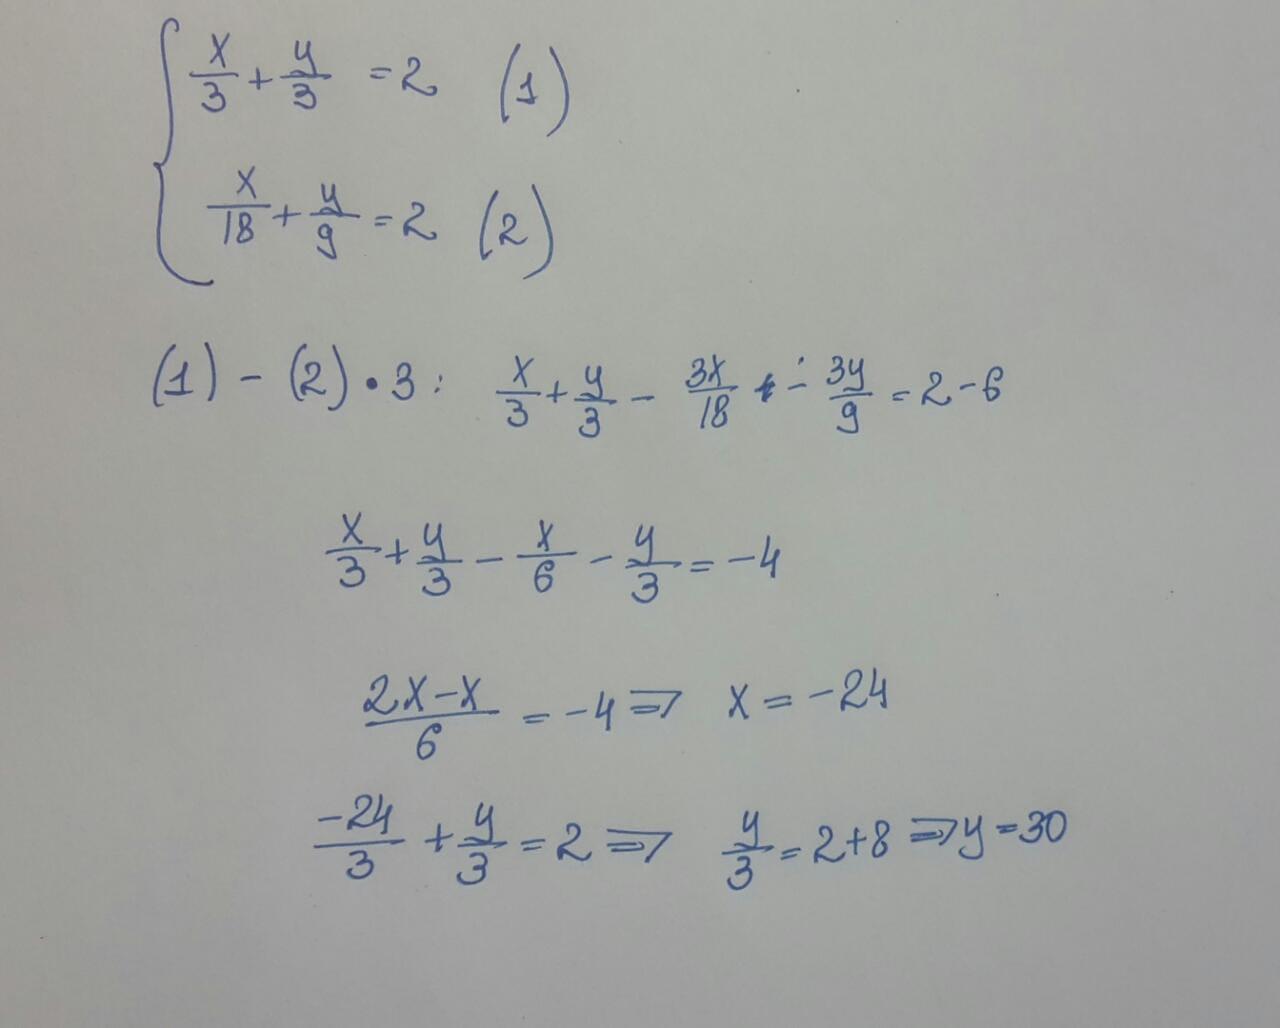 x/3 + y/3 = 2 (1)
x/18 + y/9 = 2 (2)
(1) - (2) • 3 : x/3 + y/3 - 3x/18 - 3y/9 = 2 - 6
x/3 + y/3 - x/6 - y/3 = -4
2x-x/6 = -4 ⇒ x = -24
-24/3 + y/3 = 2 ⇒ y/3 = 2+8 ⇒ y = 30